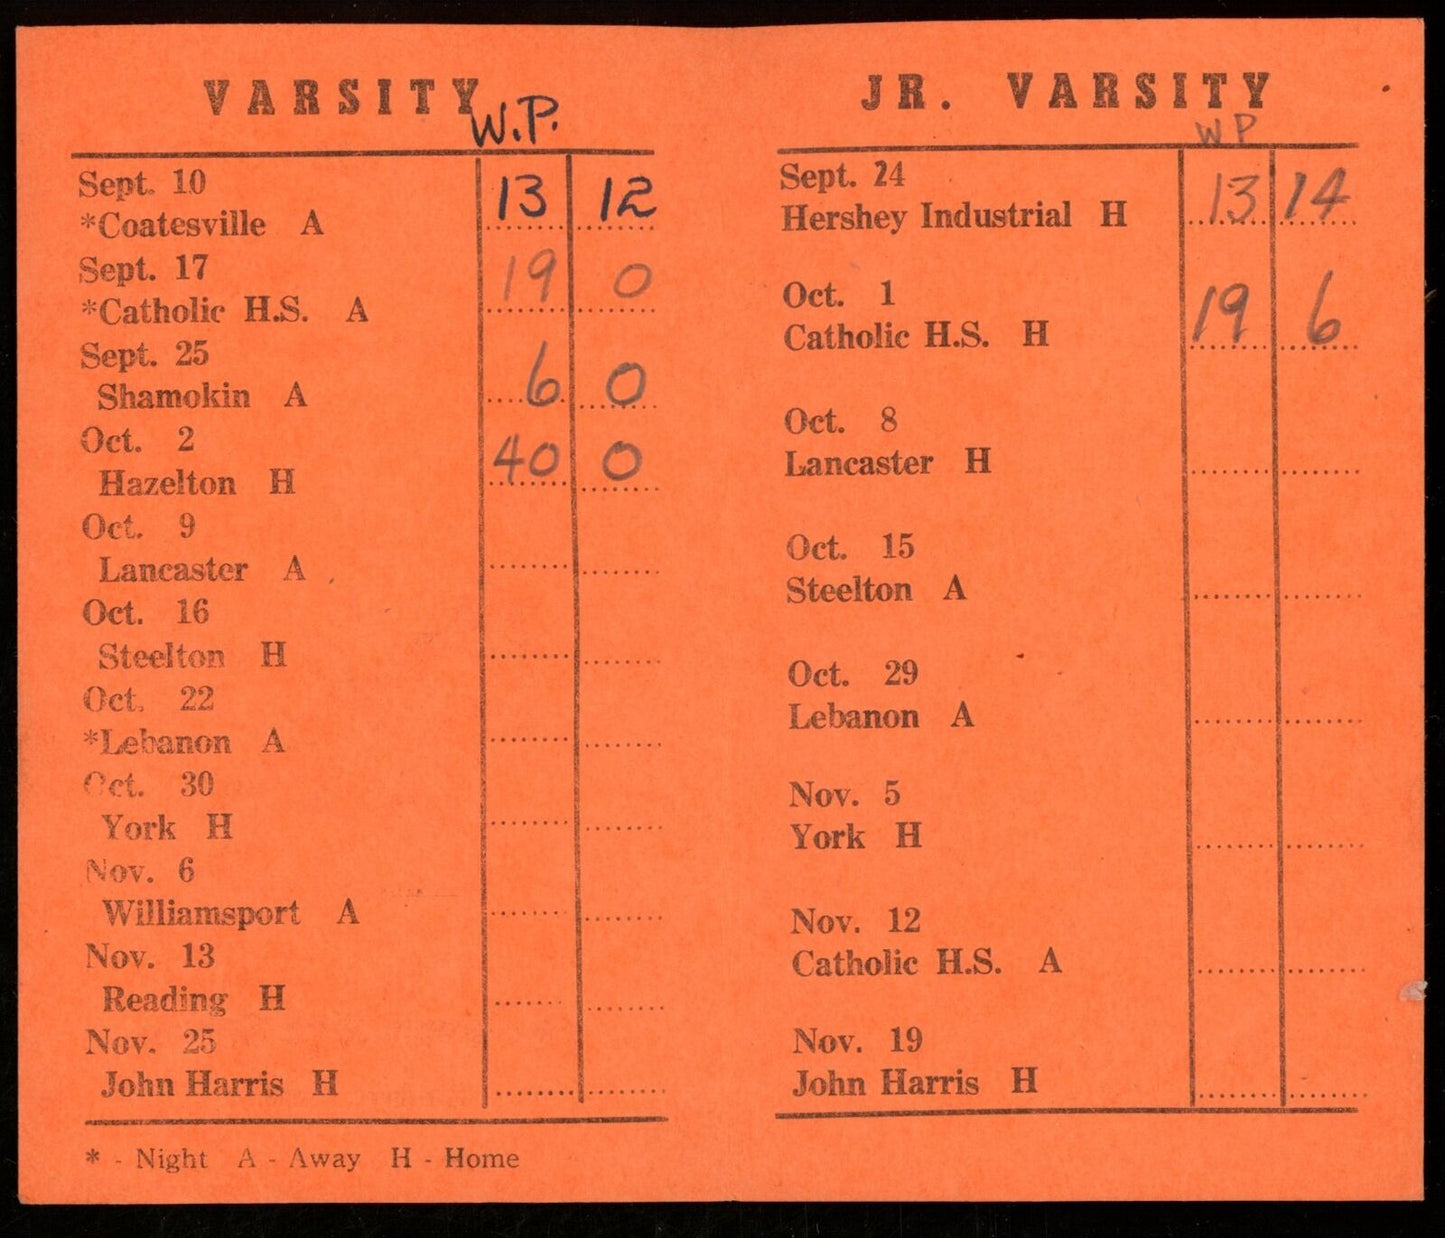 VARSITY
W.P.
Sept. 10
*Coatesville A 13 12
Sept. 17
*Catholic H.S. A 19 0
Sept. 25
Shamokin A 6 0
Oct. 2
Hazelton H 40 0
Oct. 9
Lancaster A
Oct. 16
Steelton H
Oct. 22
*Lebanon A
Oct. 30
York H
Nov. 6
Williamsport A
Nov. 13
Reading H
Nov. 25
John Harris H
* - Night A - Away H - Home
JR. VARSITY
WP
Sept. 24
Hershey Industrial H 13 14
Oct. 1
Catholic H.S. H 19 6
Oct. 8
Lancaster H
Oct. 15
Steelton A
Oct. 29
Lebanon A
Nov. 5
York H
Nov. 12
Catholic H.S. A
Nov. 19
John Harris H